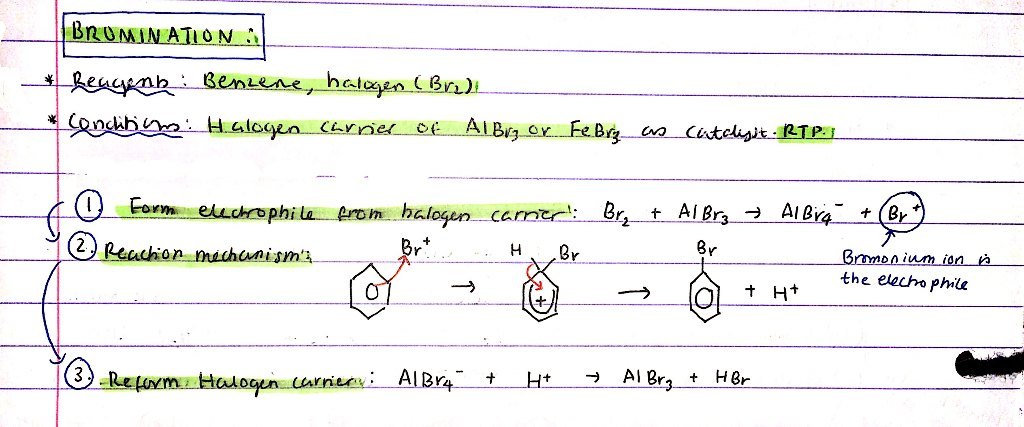 BROMINATION :
* Reagents : Benzene, halogen (Br₂)
* Conditions : Halogen carrier of AlBr₃ or FeBr₃ as catalyst. RTP.
① Form electrophile from halogen carrier : Br₂ + AlBr₃ → AlBr₄⁻ + Br⁺
② Reaction mechanism :
Br⁺ → H Br + → Br + H⁺
Bromonium ion is
the electrophile
③ Reform Halogen carrier : AlBr₄⁻ + H⁺ → AlBr₃ + HBr